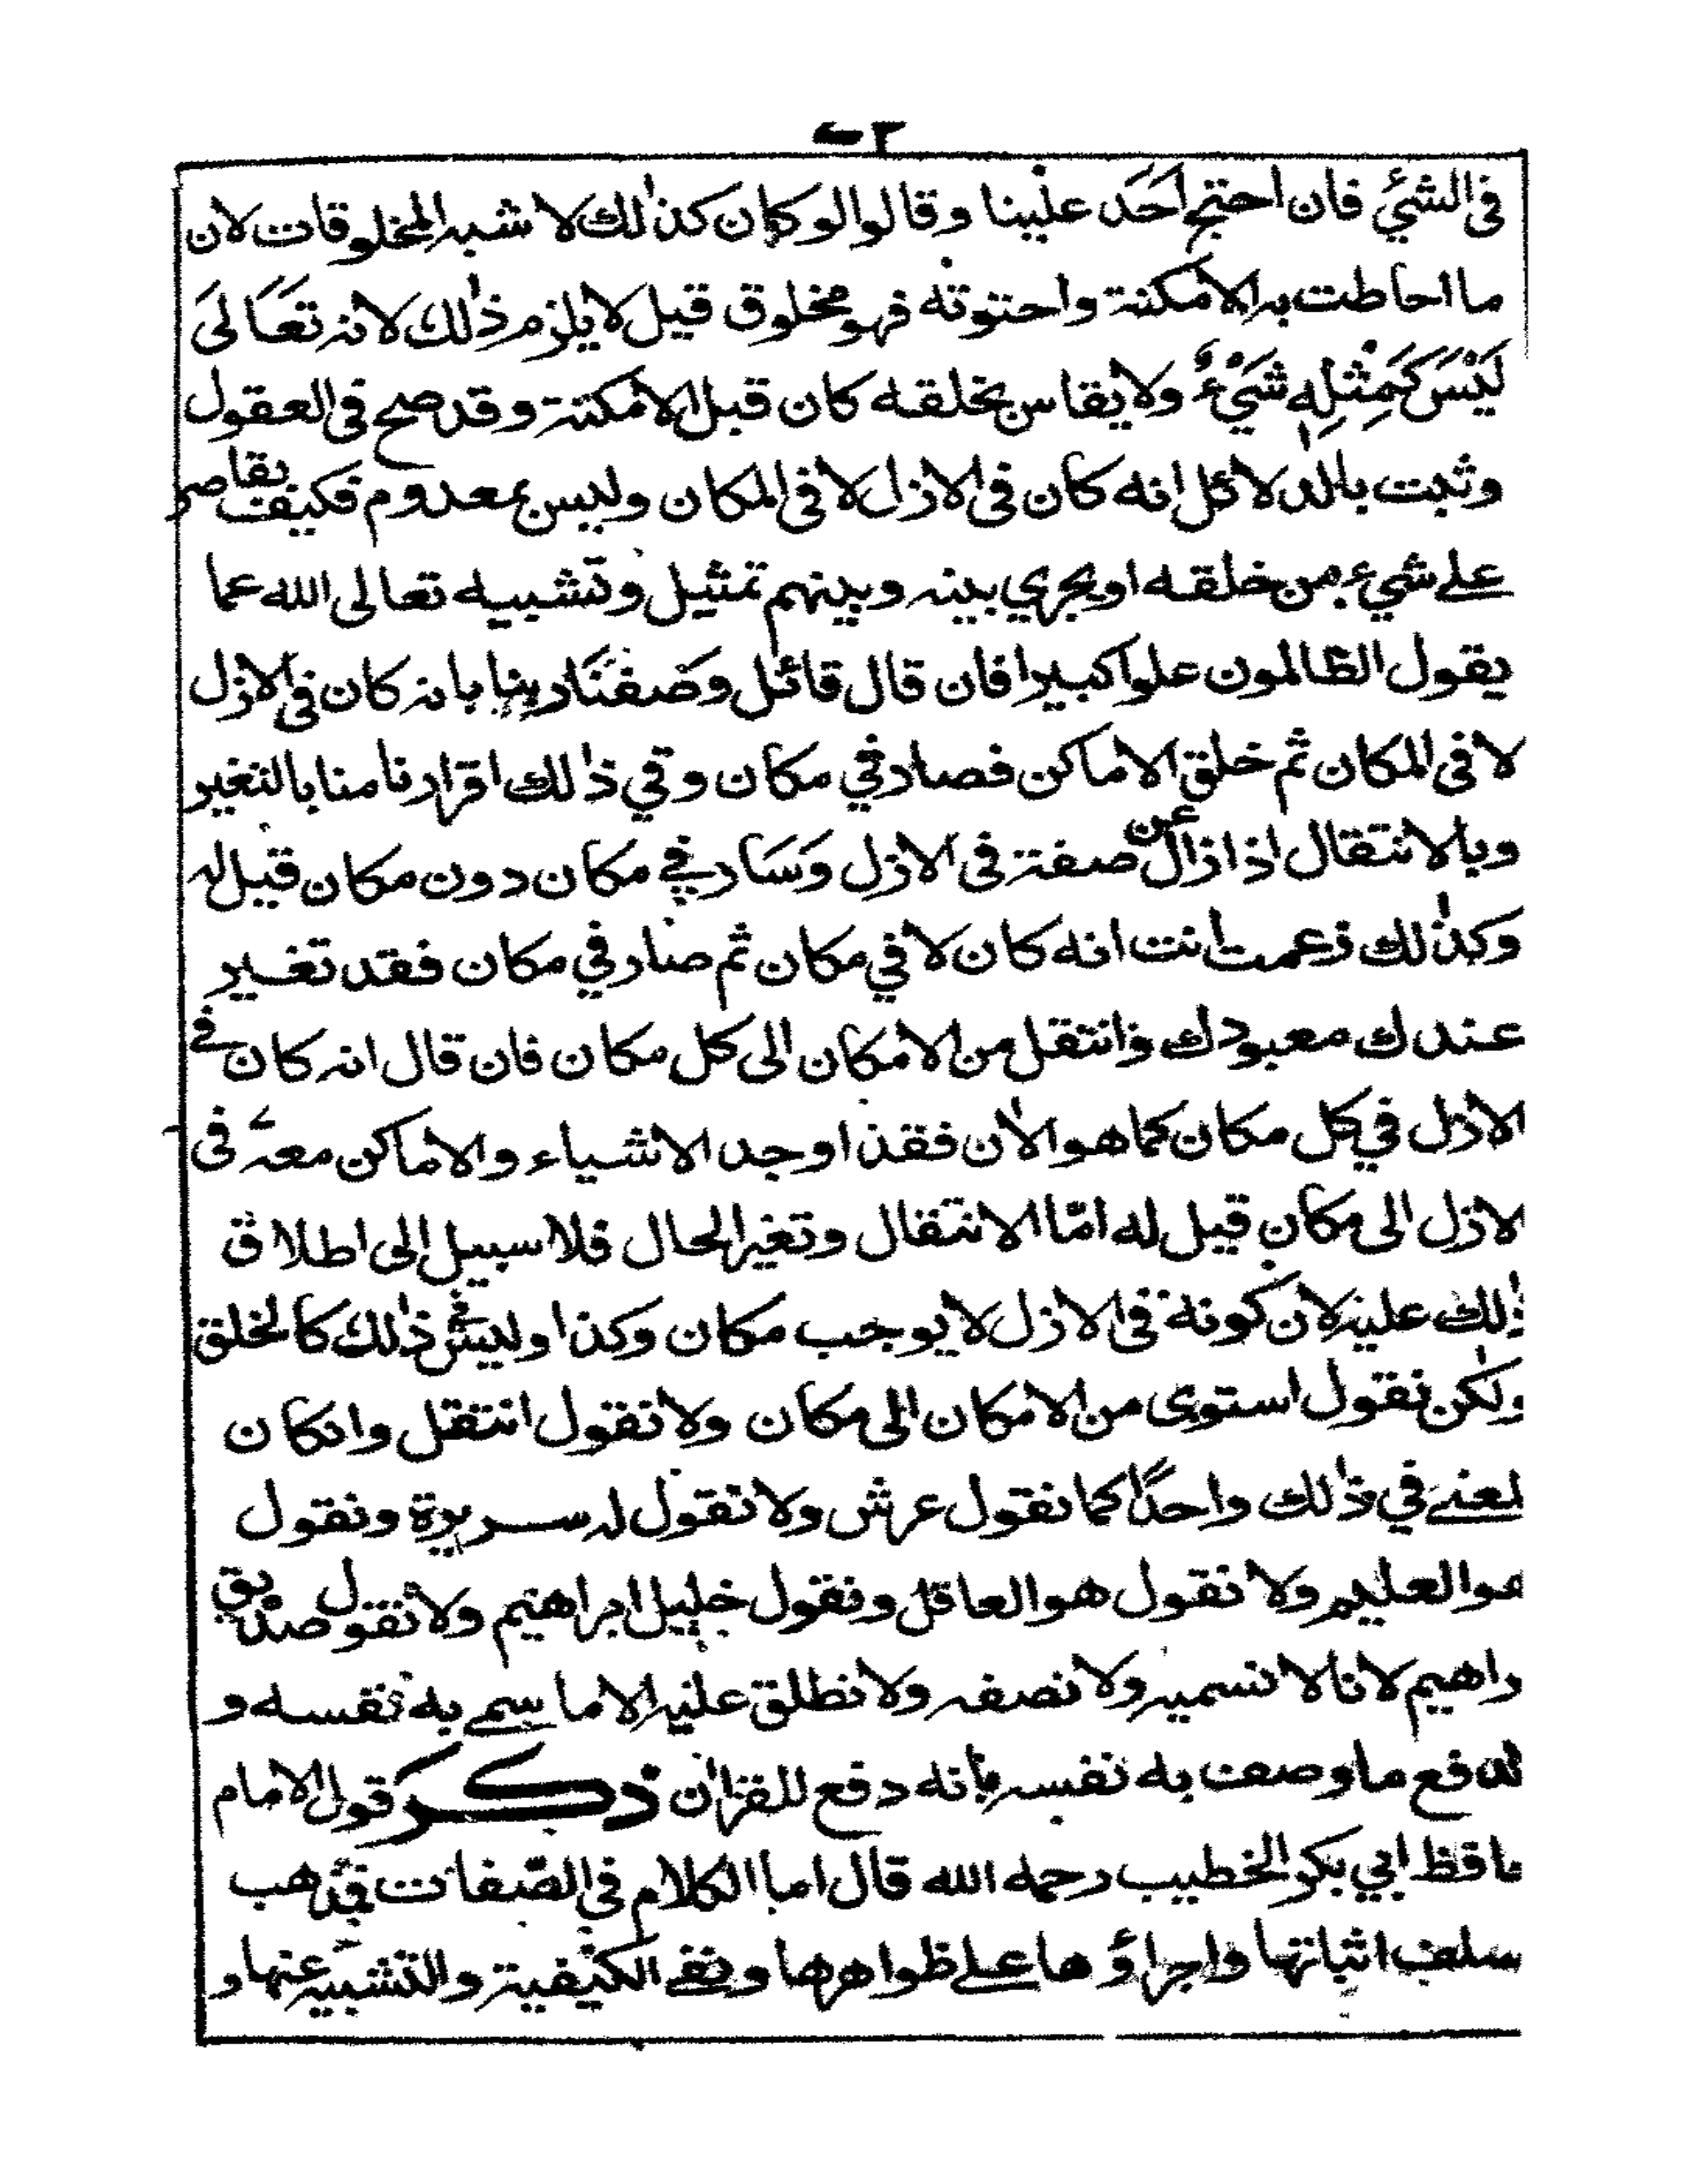 ٢٠
فى الشئ فان احتج احد علينا وقالوا لو كان كذلك لاشبه المخلوقات لان
ما احاطت به الامكنة واحتوته فهو مخلوق قيل لا يلزم ذلك لانه تَعَالىَ
لَيْسَ كَمِثْلِهٖ شَيْءٌ ولا يقاس بخلقه كان قبل الامكنة وقد صح فى العقول
وثبت بالدلائل انه كان فى الازل لا فى المكان وليس بمعدوم فكيف يقاس
على شيء من خلقه او يجري بينه وبينهم تمثيل وتشبيه تعالى الله عما
يقول الظالمون علوا كبيرا فان قال قائل وصفنا ربنا بانه كان فى الازل
لا فى المكان ثم خلق الاماكن فصار في مكان وفي ذلك اقرار نا منا بالتغير
وبالانتقال اذا زال عن صفته فى الازل وَسَار في مكان دون مكان قيل له
وكذلك زعمت انت انه كان لا في مكان ثم صار في مكان فقد تغير
عندك معبودك وانتقل من الامكان الى كل مكان فان قال انه كان فى
الازل في كل مكان كما هو الان فقد اوجد الاشياء والاماكن معه فى
لازل الى مكان قيل له امّا الانتقال وتغير الحال فلا سبيل الى اطلاق
ذلك عليه لان كونه فى الازل لا يوجب مكان وكذا وليس ذلك كالخلق
ولكن نقول استوى من الامكان الى مكان ولا نقول انتقل وانكان
لمعنى في ذلك واحدًا كما نقول عرش ولا نقول له سريرة ونقول
هو العليم ولا نقول هو العاقل ونقول خليل ابراهيم ولا نقول صديق
راهيم لانا لا نسميه ولا نصفه ولا نطلق عليه الا ما سمى به نفسه و
لا ندفع ما وصف به نفسه بانه دفع للقران ذكر قول الامام
ابي بكر الخطيب رحمه الله قال اما الكلام في الصّفات فذهب
سلف اثباتها واجراؤها على ظواهرها ونفى الكيفية والتشبيه عنها و